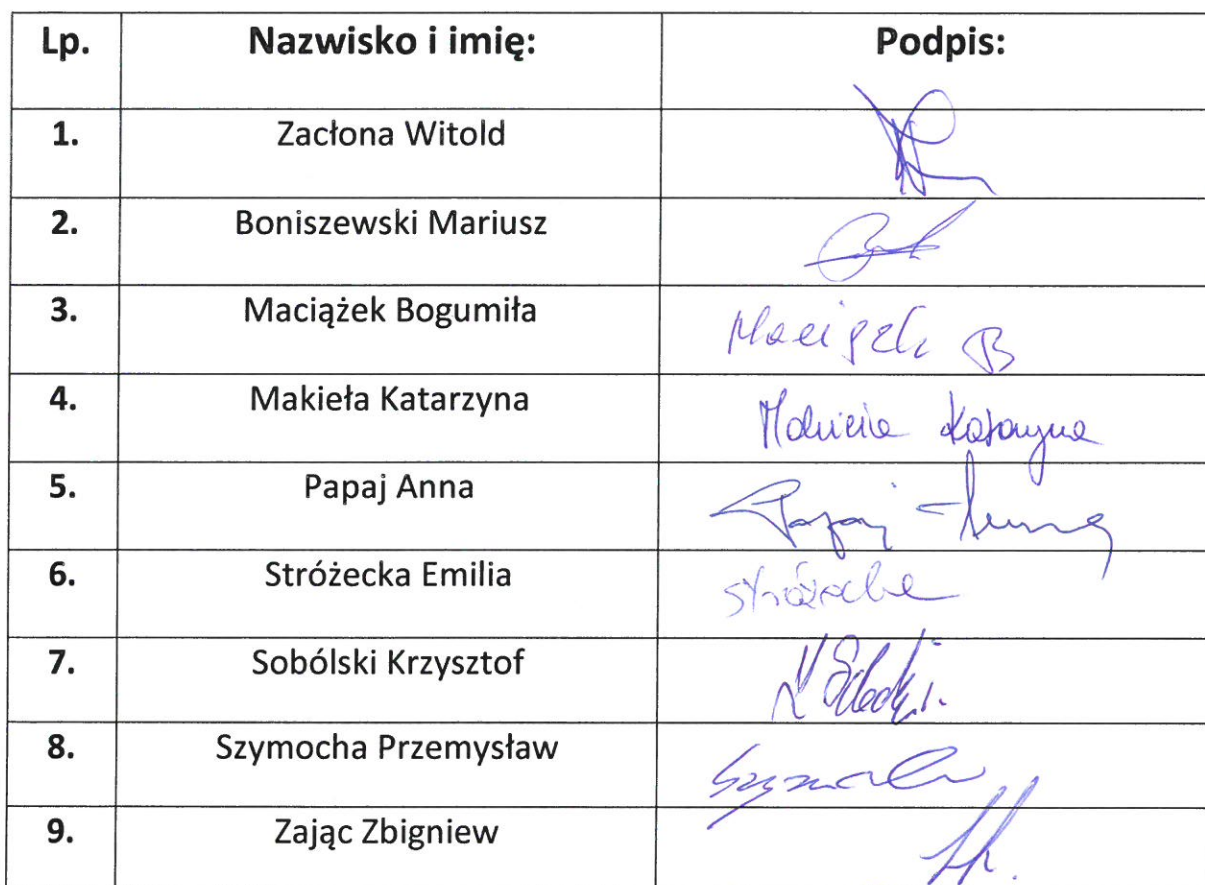 Lp. Nazwisko i imię: Podpis:
1. Zacłona Witold
2. Boniszewski Mariusz
3. Maciążek Bogumiła
4. Makieła Katarzyna Makieła Katarzyna
5. Papaj Anna Papaj Anna
6. Stróżecka Emilia Stróżecka
7. Sobólski Krzysztof
8. Szymocha Przemysław
9. Zając Zbigniew